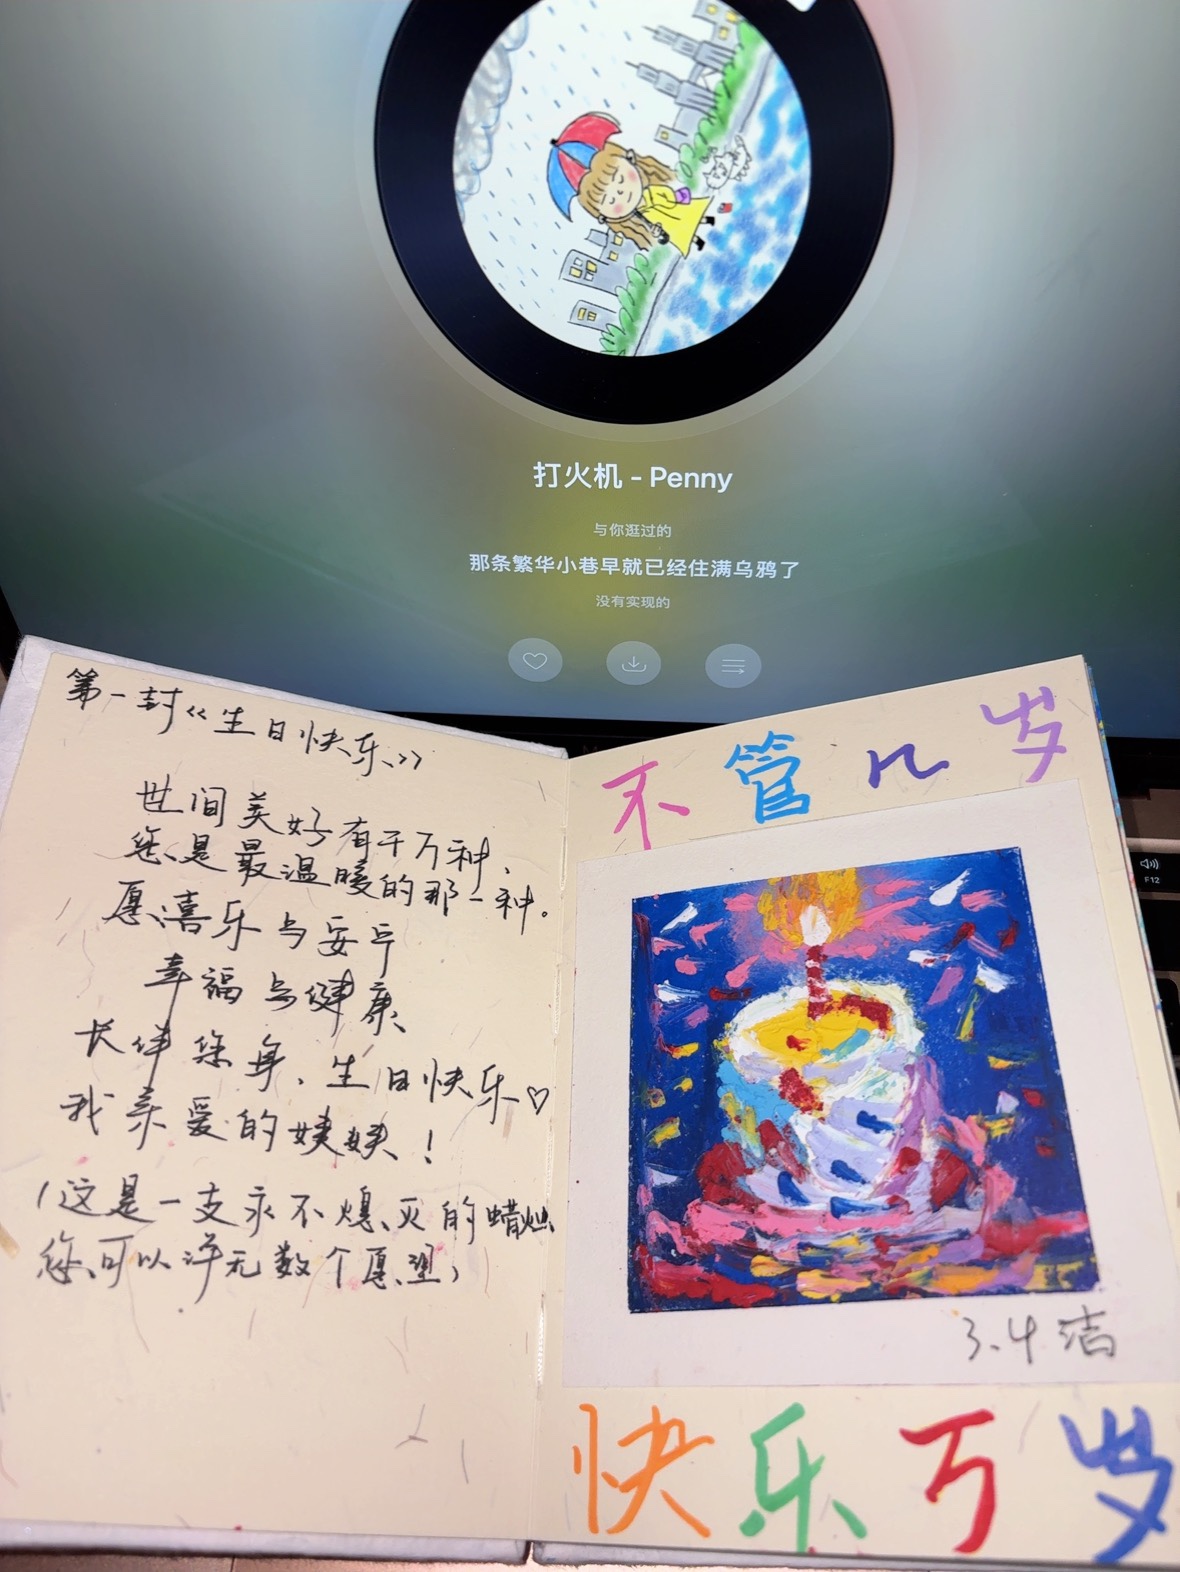 打火机 - Penny
与你逛过的
那条繁华小巷早就已经住满乌鸦了
没有实现的
F12
第一封《生日快乐》
世间美好有千万种，
您是最温暖的那一种。
愿喜乐与安宁
幸福与健康
长伴您身，生日快乐♡
我亲爱的姨姨！
（这是一支永不熄灭的蜡烛
您可以许无数个愿望）
不管几岁
3.4 洁
快乐万岁